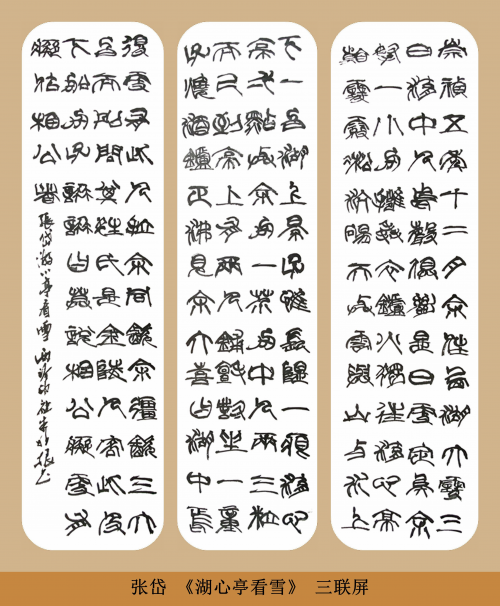 崇禎五年十二月余住西湖大雪三
日湖中人鳥聲俱絕是日更定矣余
拏一小舟擁毳衣爐火獨往湖心亭
看雪霧凇沆碭天與雲與山與水上
下一白湖上影子惟長堤一痕湖心
亭一點與余舟一芥舟中人兩三粒
而已到亭上有兩人鋪氈對坐一童
子燒酒爐正沸見余大喜曰湖中焉
得更有此人拉余同飲余強飲三大
白而別問其姓氏是金陵人客此及
下船舟子喃喃曰莫說相公癡更有
癡似相公者 張岱湖心亭看雪
张岱 《湖心亭看雪》 三联屏